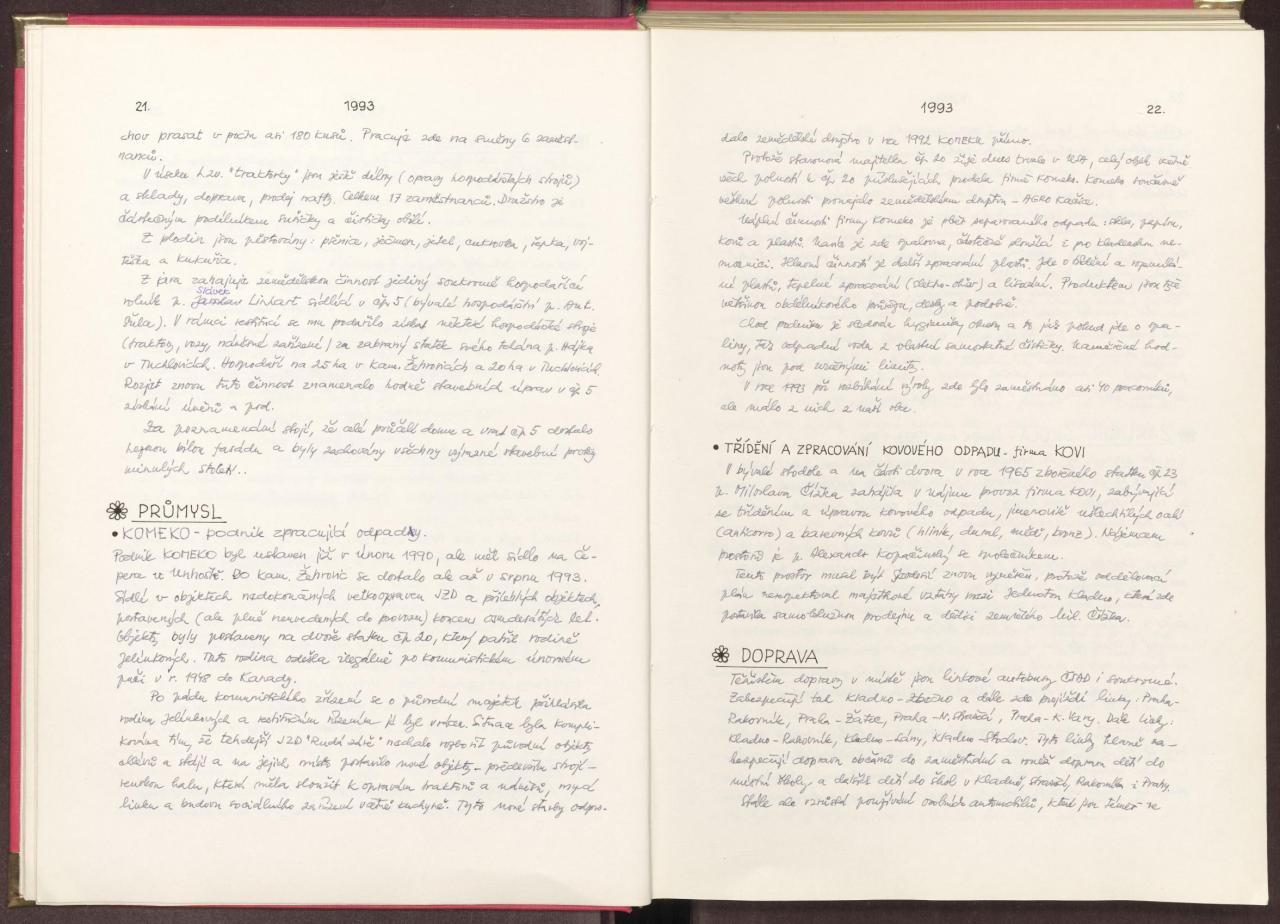 21.
1993
chov prasat v počtu asi 180 kusů. Pracuje zde na směny 6 zaměst-
nanců.
V úseku t.zv. "traktorky" jsou ještě dílny (opravy hospodářských strojů)
a sklady, doprava, prodej nafty. Celkem 17 zaměstnanců. Družstvo je
částečným podílníkem sušičky a čističky obilí.
Z plodin jsou pěstovány: pšenice, ječmen, jetel, cukrovka, řepka, voj-
těška a kukuřice.
Z jara zahajuje zemědělskou činnost jediný soukromě hospodařící
Slávek
rolník p. Jaroslav Linhart sídlící v čp. 5 (bývalé hospodářství p. Ant.
Šúla). V rámci restitucí se mu podařilo získat některé hospodářské stroje
(traktory, vozy, náhradní zařízení) za zabraný statek svého tchána p. Hájka
v Tuchlovicích. Hospodaří na 25 ha v Kam. Žehrovicích a 20 ha v Tuchlovicích.
Rozjet znovu tuto činnost znamenalo hodně stavebních úprav v čp. 5
získání úvěrů a pod.
Za poznamenání stojí, že celé průčelí domu a vrat čp. 5 dostalo
hezkou bílou fasádu a byly zachovány všechny výrazné stavební prvky
minulých století..
PRŮMYSL
• KOMEKO - podnik zpracující odpadky.
Podnik KOMEKO byl ustaven již v únoru 1990, ale měl sídlo na Če-
peru ve Unhoště. Do Kam. Žehrovic se dostalo ale až v srpnu 1993.
Sídlí v objektech nedokonaných velkoopraven JZD a přilehlých objektech,
postavených (ale plně neuvedených do provozu) koncem osmdesátých let.
Objekty byly postaveny na dvoře statku čp. 20, který patřil rodině
Jelínkových. Tato rodina odešla ilegálně po komunistickém únorovém
puči v r. 1948 do Kanady.
Po pádu komunistického zřízení se o původní majetek přihlásila
rodina Jelínkových a restitučním řízením jí byl vrácen. Situace byla kompli-
kována tím, že tehdejší JZD "Rudá záře" nechalo rozbořit původní objekty
chlévů a stájí a na jejich místě postavilo nové objekty - především strojí-
renskou halu, která měla sloužit k opravám traktorů a nářadí, mycí
linku a budovu sociálního zařízení včetně kuchyně. Tyto nové stavby odpro-
1993
22.
dalo zemědělské družstvo v roce 1992 KOMEKU přímo.
Protože stanovená majitelka čp. 20 žije dnes trvale v USA, celý objekt včetně
všech polností k čp. 20 příslušejících, prodala firmě Komeko. Komeko současně
veškeré polnosti pronajalo zemědělskému družstvu - AGRO Kačice.
Náplní činnosti firmy Komeko je sběr separovaného odpadu: skla, papíru,
kovů a plastů. Navíc je zde spalovna, částečně sloužící i pro kladenskou ne-
mocnici. Hlavní činností je další zpracování plastů. Jde o třídění a rozmělně-
ní plastů, tepelné zpracování (elektro-ohřev) a lisování. Produktem jsou tyče
většinou obdélníkového průřezu, desky a podobně.
Chod podniku je sledován hygieniky okresu a to jak pokud jde o spa-
liny, též odpadní voda z vlastní samostatné čističky. Naměřené hod-
noty jsou pod určenými limity.
V roce 1993 při rozbíhání výroby zde bylo zaměstnáno asi 40 pracovníků,
ale málo z nich z naší obce.
• TŘÍDĚNÍ A ZPRACOVÁNÍ KOVOVÉHO ODPADU - firma KOVI
V bývalé stodole a na části dvora v roce 1965 zbořeného statku čp. 23
p. Miloslava Čížka zahájila v nájmu provoz firma KOVI, zabývající
se tříděním a úpravou kovového odpadu, jmenovitě ušlechtilých ocelí
(antikorro) a barevných kovů (hliník, dural, mědě, bronz). Nájemcem
prostorů je p. Alexandr Kopačinský se společníkem.
Tento prostor musel být geodeticky znovu vyměřen, protože oddělovací
plán nerespektoval majetkové vztahy mezi Jednotou Kladno, která zde
postavila samoobslužnou prodejnu a dědici zemřelého Mil. Čížka.
DOPRAVA
Těžištěm dopravy v místě jsou linkové autobusy ČSAD i soukromé.
Zabezpečují tak Kladno - Zbečno a dále zde projíždí linky: Praha-
Rakovník, Praha - Žatec, Praha - N. Strašecí, Praha - K. Vary. Dále linky:
Kladno - Rakovník, Kladno - Lány, Kladno - Stochov. Tyto linky hlavně za-
bezpečují dopravu občanů do zaměstnání a rovněž dopravu dětí do
místní školy a dalších dětí do škol v Kladně, Strašecí, Rakovníku i Prahy.
Stále ale vzrůstá používání osobních automobilů, které jsou téměř ve